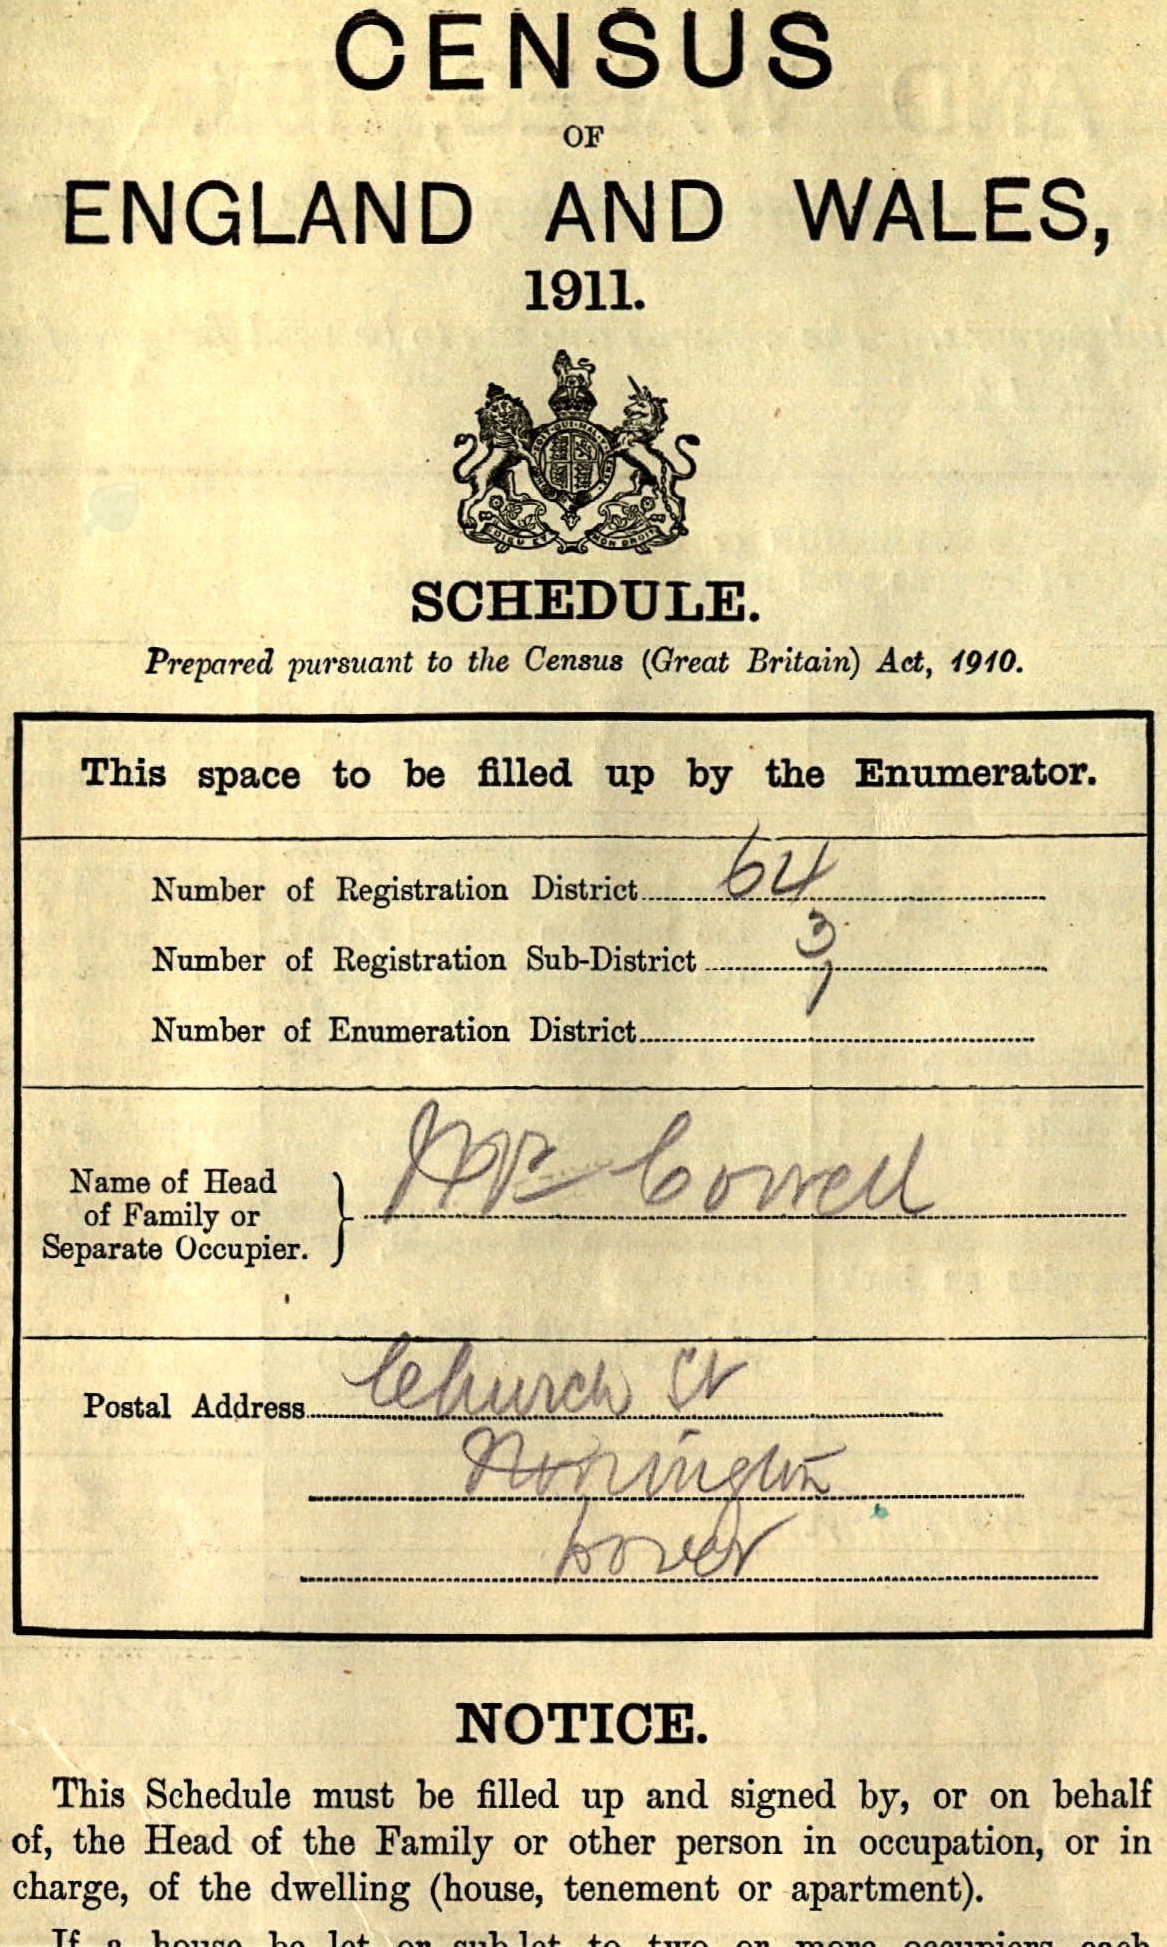 CENSUS
OF
ENGLAND AND WALES,
1911.
SCHEDULE.
Prepared pursuant to the Census (Great Britain) Act, 1910.
This space to be filled up by the Enumerator.
Number of Registration District 64
Number of Registration Sub-District 3
Number of Enumeration District 1
Name of Head
of Family or
Separate Occupier.
Cowell
Postal Address Church St
Nonington
Dover
NOTICE.
This Schedule must be filled up and signed by, or on behalf
of, the Head of the Family or other person in occupation, or in
charge, of the dwelling (house, tenement or apartment).
If a house be let or sub-let to two or more occupiers each